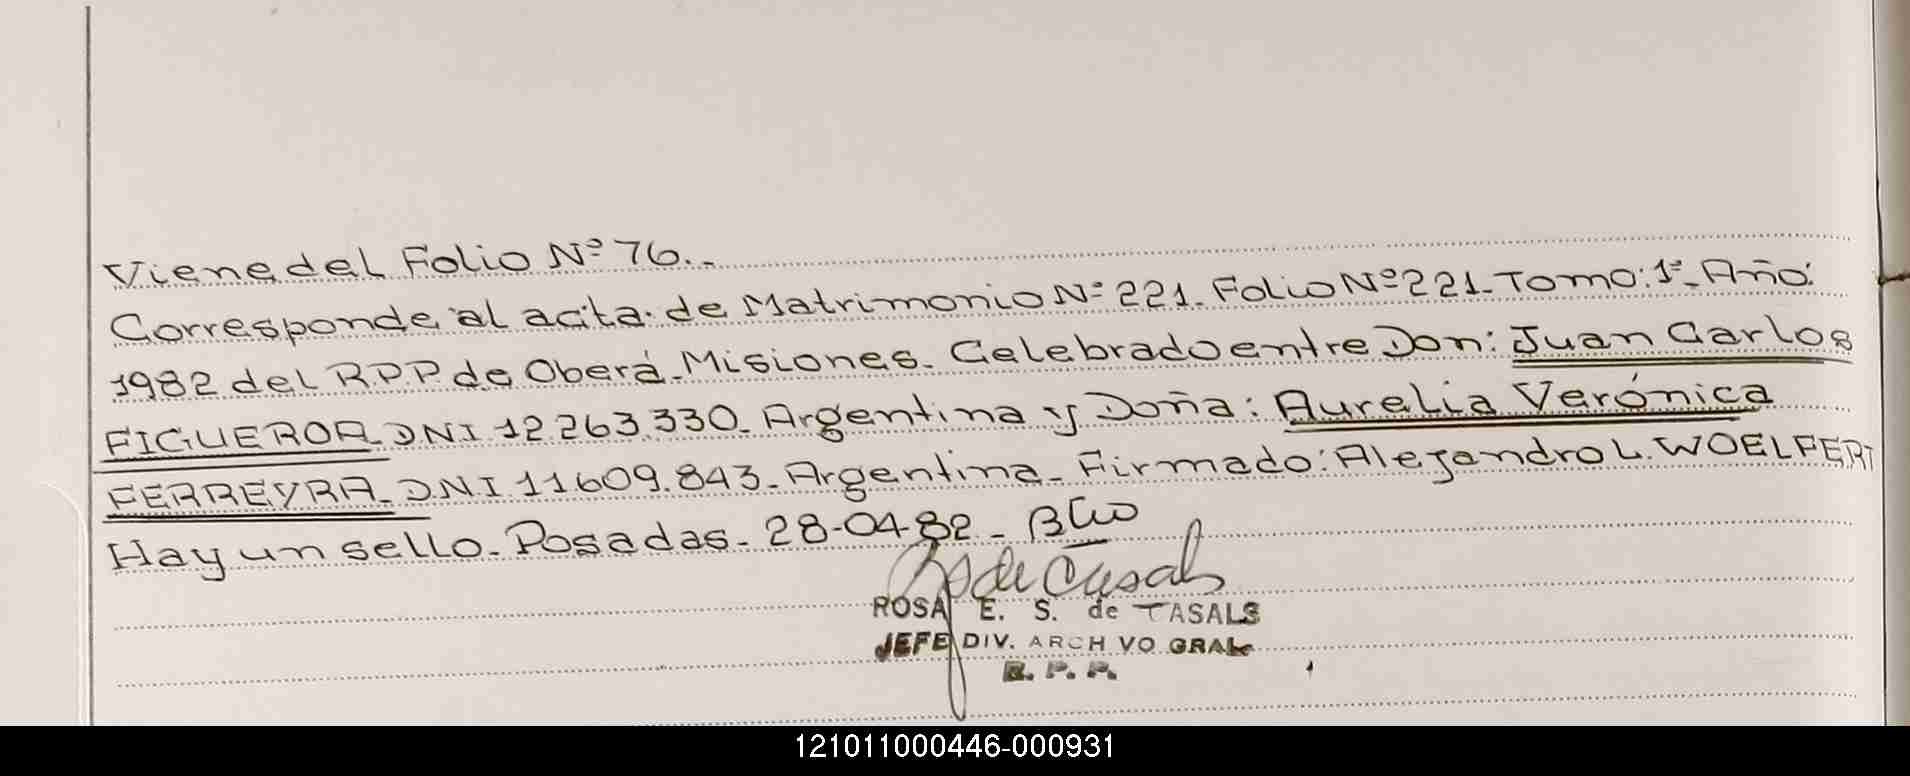 Viene del Folio Nº 76._
Corresponde al acta de Matrimonio Nº 221_ Folio Nº 221_ Tomo: 1º_ Año:
1982 del R.P.P. de Oberá_Misiones_ Celebrado entre Don: Juan Carlos
FIGUEROA_DNI 12.263.330_ Argentina y Doña: Aurelia Verónica
FERREYRA_DNI.11609.843_Argentina_ Firmado: Alejandro L. WOELFERT
Hay un sello_Posadas_28-04-82_
de Casals
ROSA E. S. de CASALS
JEFE DIV. ARCH VO GRAL
R. P. P.
121011000446-000931